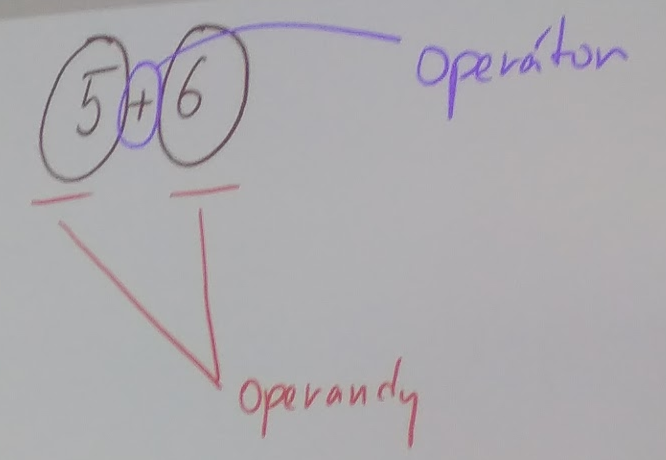 5 + 6
operátor
operandy